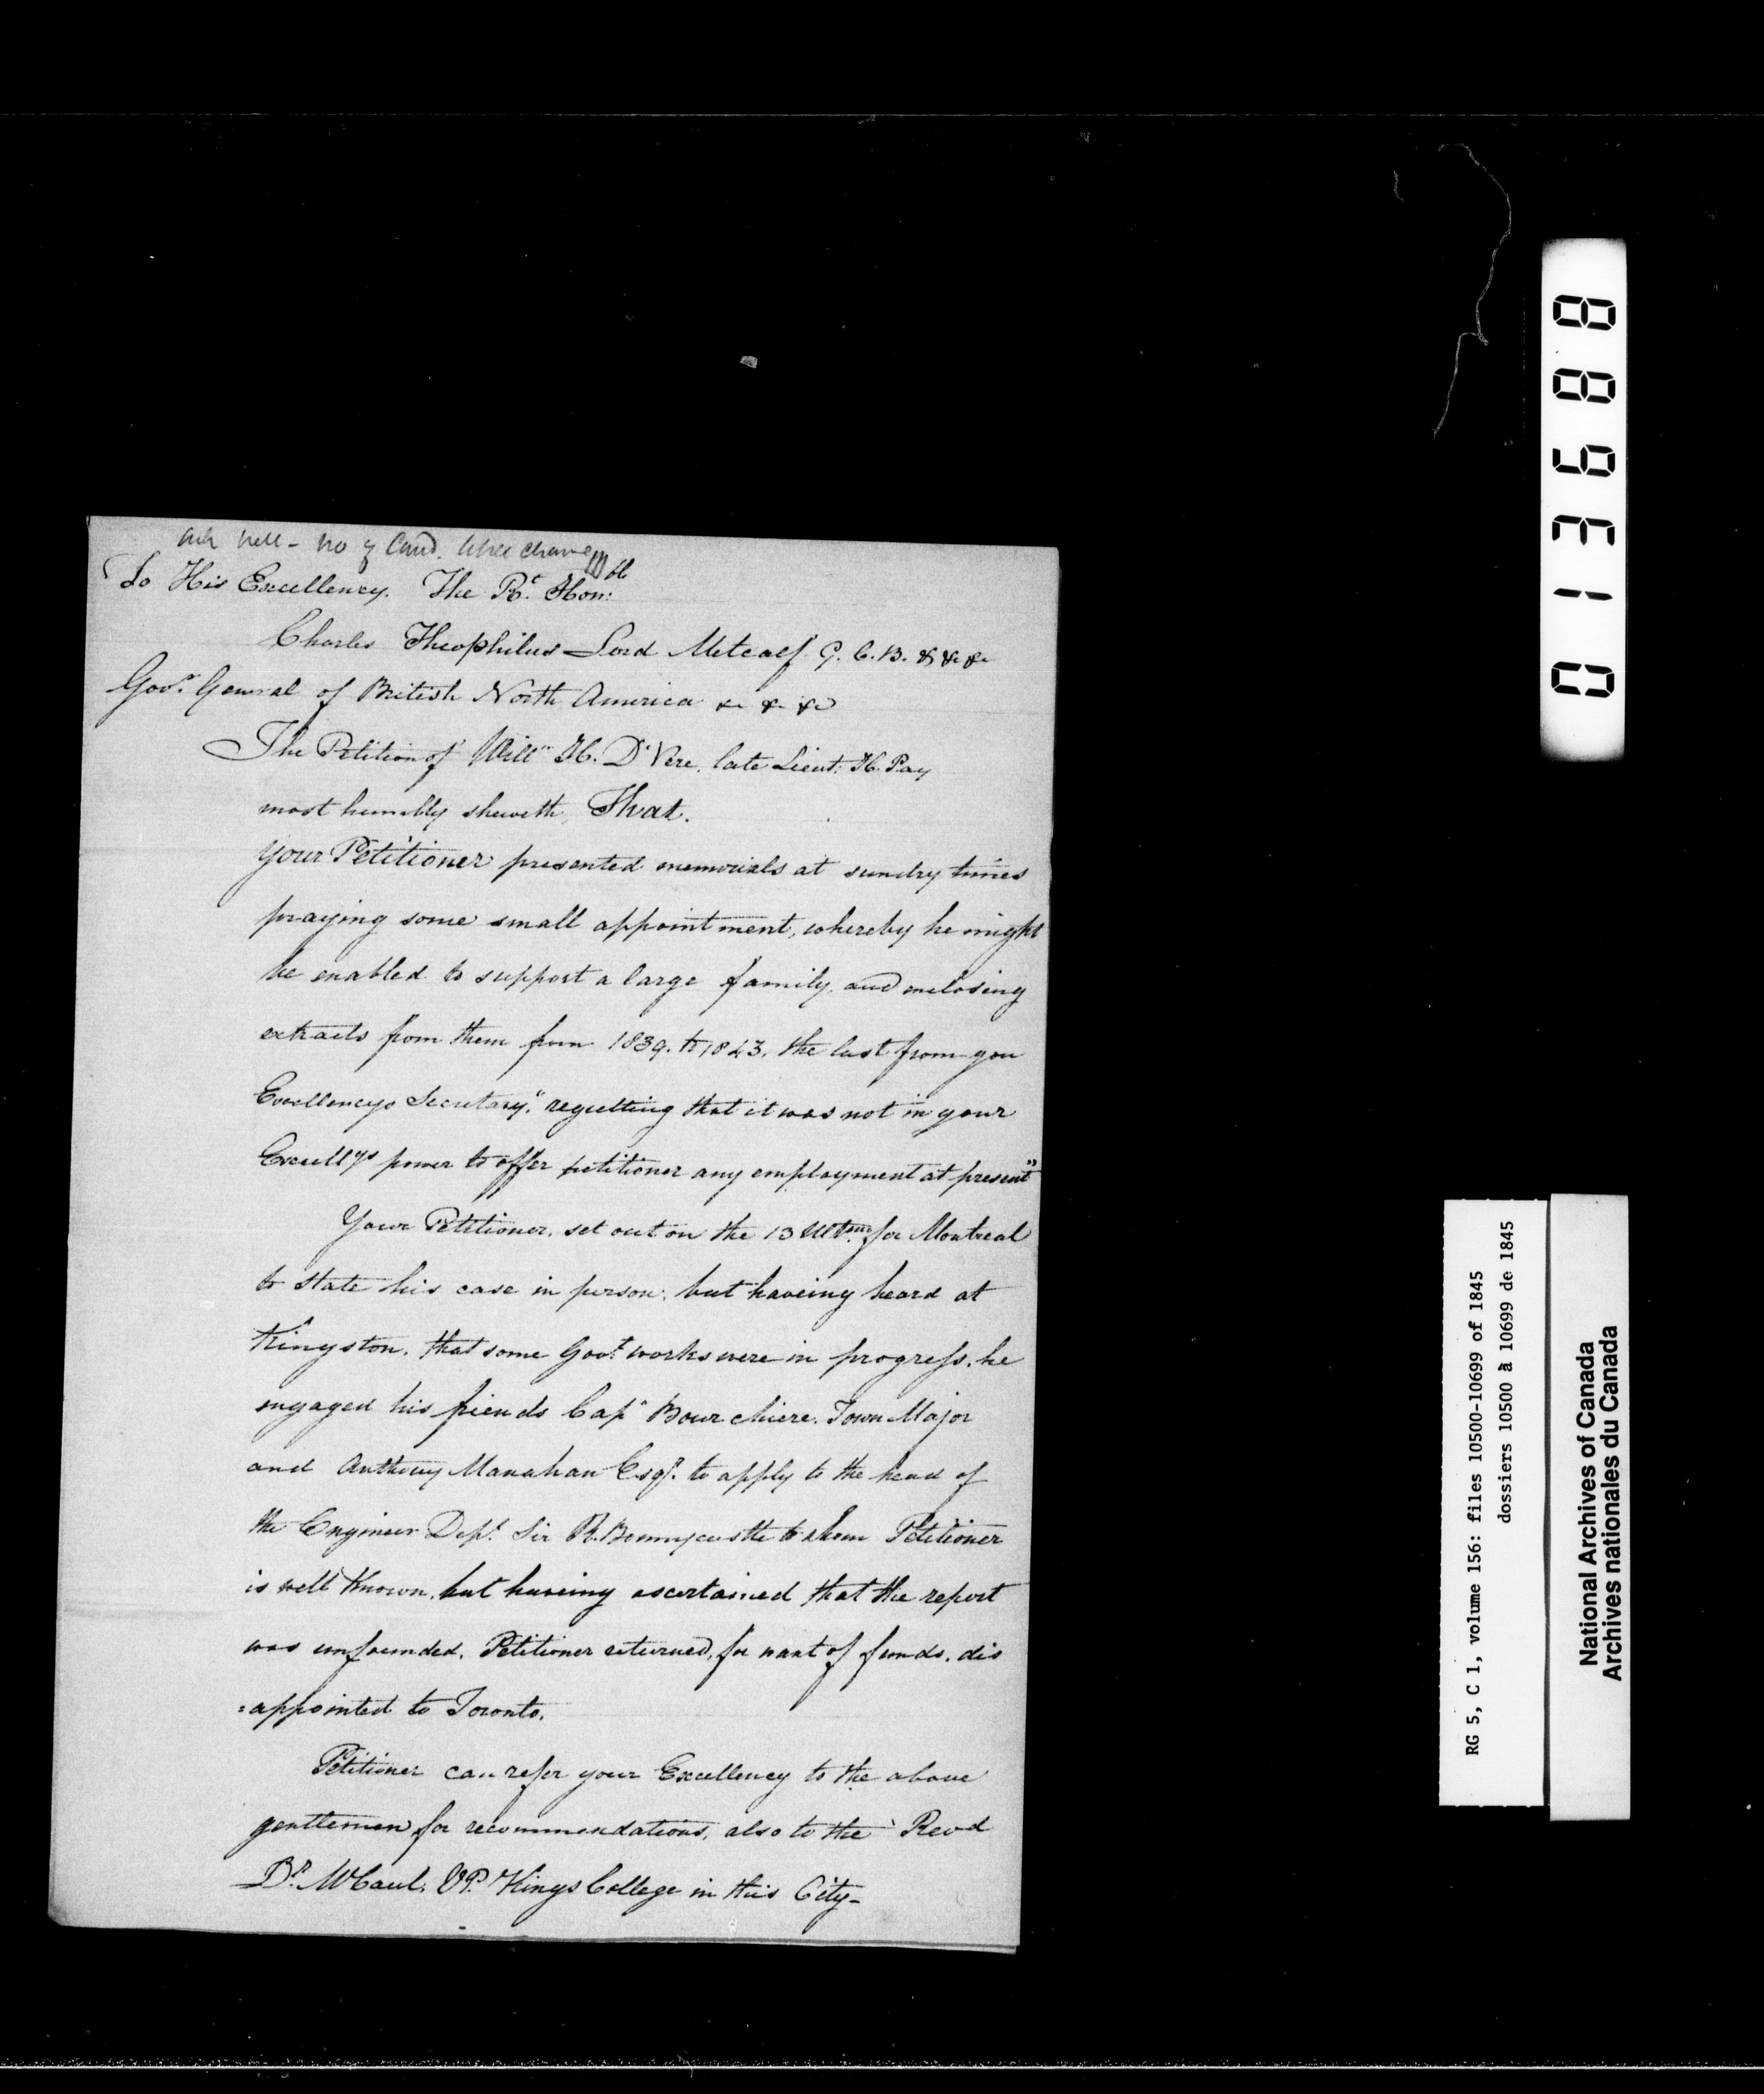 To His Excellency. The Rt. Honble
Charles Theophilus Lord Metcalf G.C.B. &c &c &c
Govr. General of British North America &c &c &c
The Petition of Willm H. D'Vere, late Lieut: H. Pay
most humbly sheweth, That.
Your Petitioner presented memorials at sundry times
praying some small appointment, whereby he might
be enabled to support a large family. and enclosing
extracts from them from 1839. to 1843. the last from you
Excellencys Secretary. "regretting that it was not in your
Excellys power to offer petitioner any employment at present"
Your Petitioner. set out on the 13 Ultmo. for Montreal
to state his case in person. but haveing heard at
Kingston. that some Govt. works were in progress. he
engaged his friends Capn Bourchiere. Town Major
and Anthony Manahan Esqr. to apply to the head of
the Engineer Dept. Sir R. Bonnycastle to whom Petitioner
is well known. but haveing ascertained that the report
was unfounded. Petitioner returned, for want of funds. dis
=appointed to Toronto.
Petitioner can refer your Excellency to the above
gentlemen for recommendations. also to the Revd
Dr. McCaul. V.P. Kings College in this City-
013688
RG 5, C 1, volume 156: files 10500-10699 of 1845
dossiers 10500 à 10699 de 1845
National Archives of Canada
Archives nationales du Canada